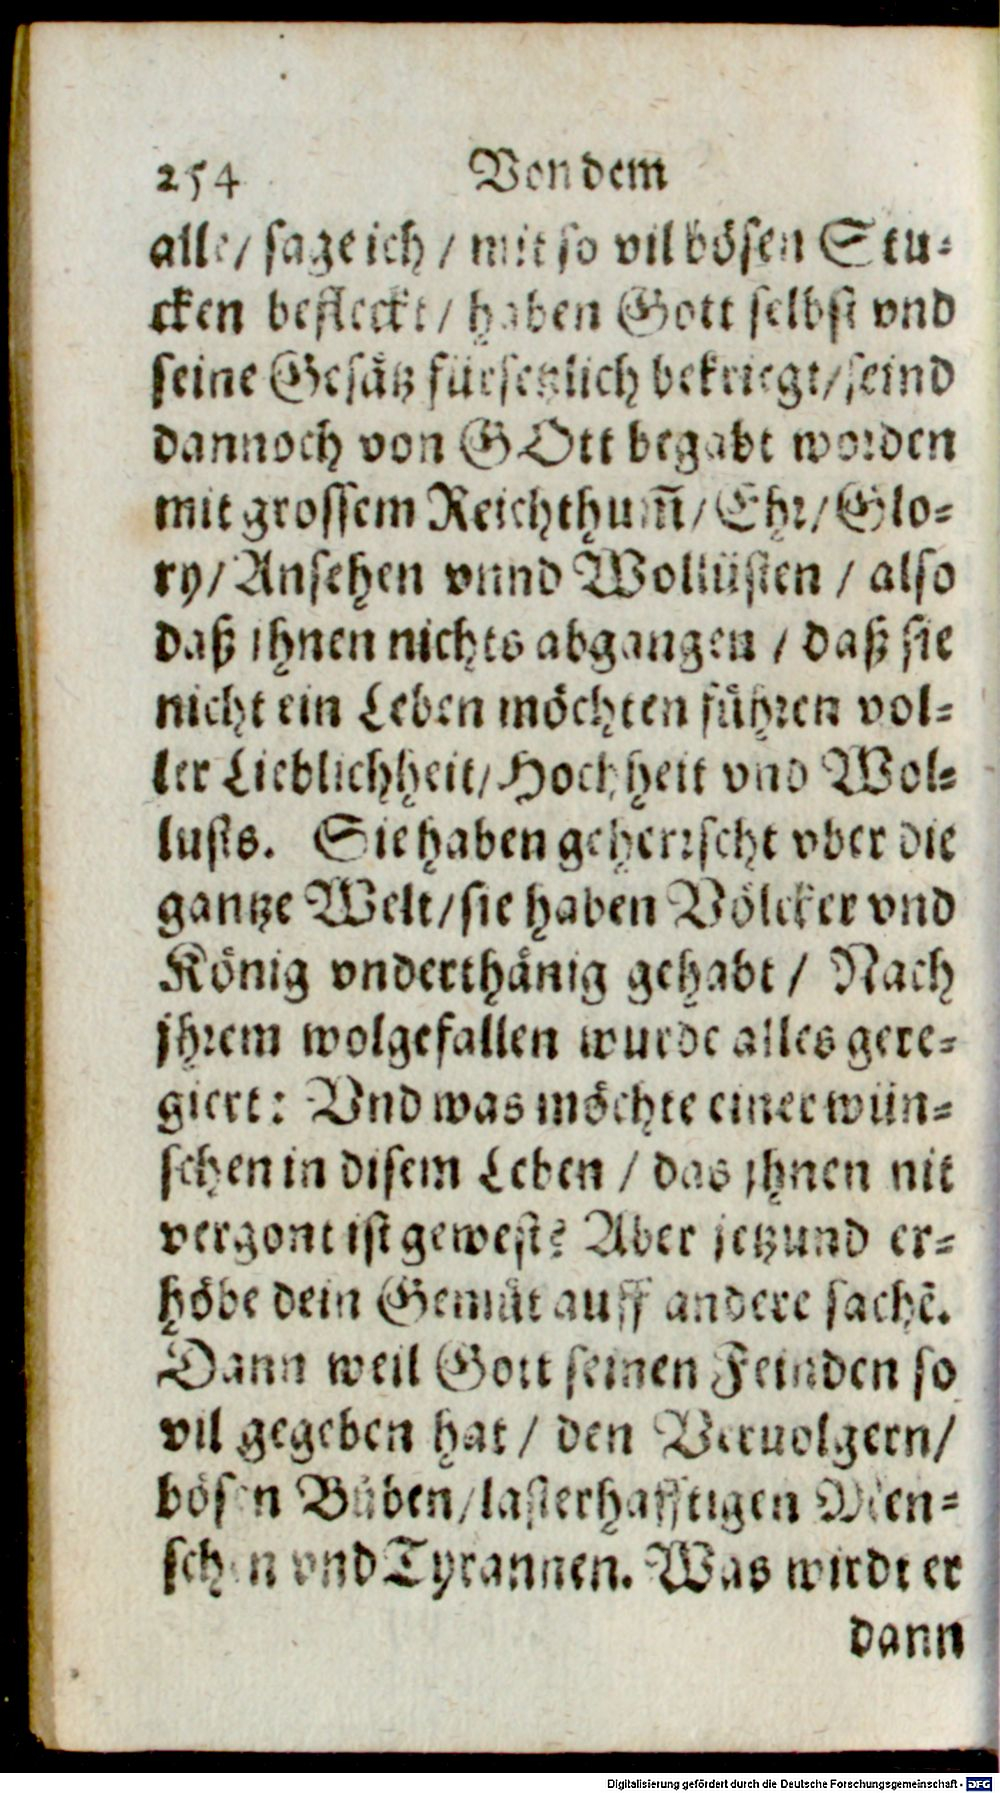 254 Von dem
alle/ sage ich / mit so vil bösen Stu-
cken befleckt/ haben Gott selbst vnd
seine Gesätz fürsetzlich bekriegt/seind
dannoch von GOtt begabt worden
mit grossem Reichthum̃/ Ehr/ Glo-
ry/ Ansehen vnnd Wollüsten / also
daß ihnen nichts abgangen / daß sie
nicht ein Leben möchten führen vol-
ler Lieblichheit/ Hochheit vnd Wol-
lusts. Sie haben geherrscht vber die
gantze Welt/sie haben Völcker vnd
König vnderthänig gehabt / Nach
jhrem wolgefallen wurde alles gere-
giert: Vnd was möchte einer wün-
schen in disem Leben / das jhnen nit
vergont ist gewest? Aber jetzund er-
höbe dein Gemüt auff andere sachẽ.
Dann weil Gott seinen Feinden so
vil gegeben hat / den Veruolgern/
bösen Büben/lasterhafftigen Men-
schen vnd Tyrannen. Was wirdt er
dann
Digitalisierung gefördert durch die Deutsche Forschungsgemeinschaft - DFG